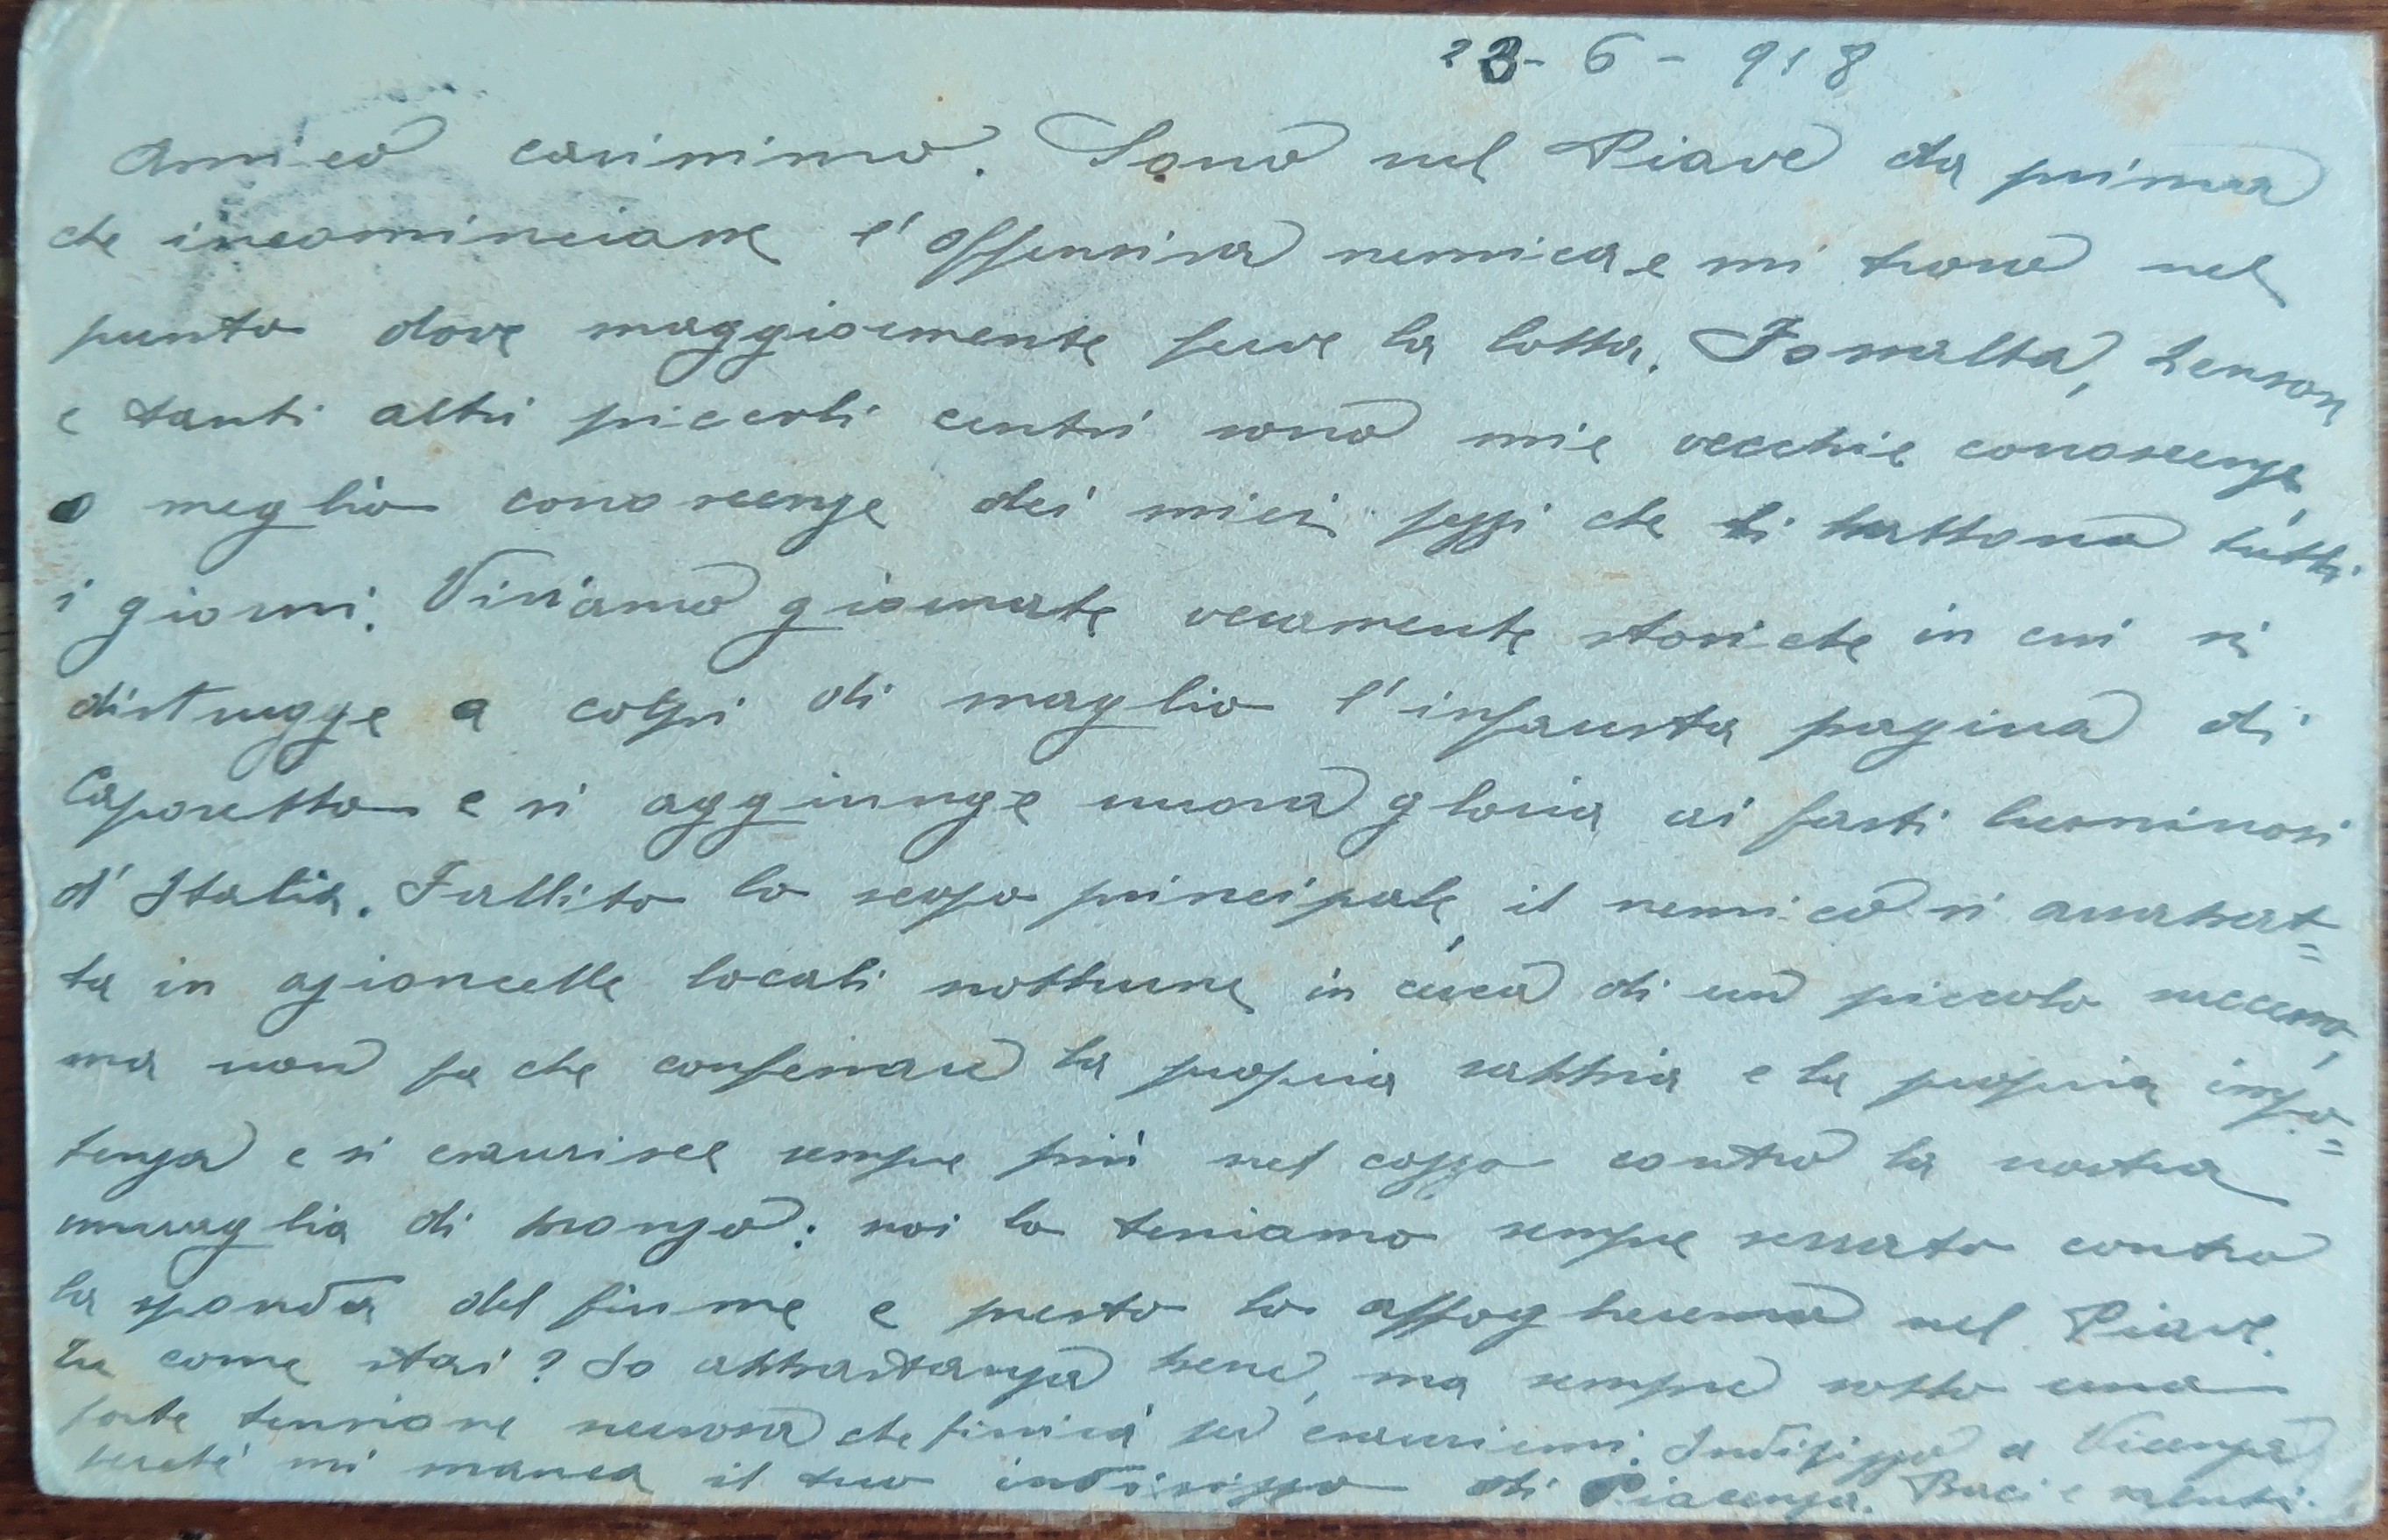 23-6-918
Amico carissimo. Sono sul Piave da prima
che incominciasse l'offensiva nemica e mi trovo nel
punto dove maggiormente ferve la lotta. Fossalta, Zenson
e tanti altri piccoli centri sono mie vecchie conoscenze,
o meglio conoscenze dei miei pezzi che li battono tutti
i giorni. Viviamo giornate veramente storiche in cui si
distrugge a colpi di maglio l'infausta pagina di
Caporetto e si aggiunge nuova gloria ai fasti luminosi
d'Italia. Fallito lo scopo principale, il nemico si
ta in azioncelle locali notturne in cerca di un piccolo successo,
ma non fa che confessare la propria rabbia e la propria impo=
tenza e si esaurisce sempre più nel cozzo contro la nostra
muraglia di bronzo: noi lo teniamo sempre serrato contro
la sponda del fiume e presto lo affogheremo nel Piave.
Tu come stai? Io abbastanza bene, ma sempre sotto una
forte tensione nervosa che finirà per esaurirmi. Indirizzo a Vicenza
perché mi manca il tuo indirizzo di Piacenza. Baci e saluti.